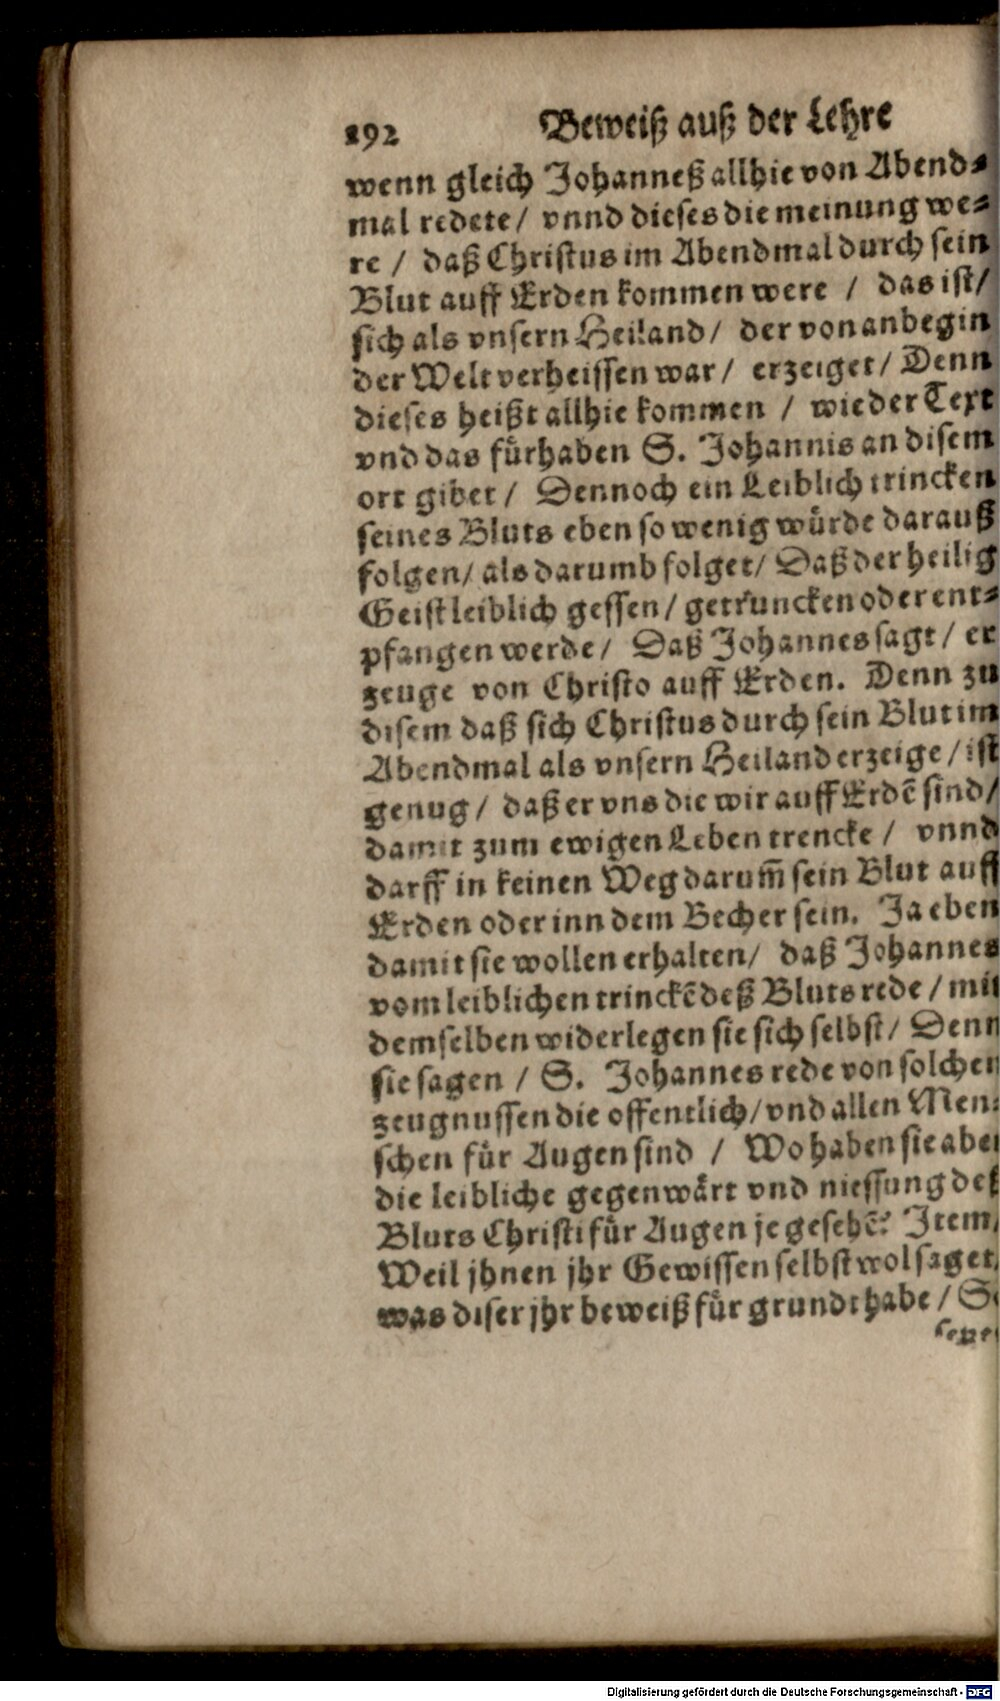 192 Beweiß auß der Lehre
wenn gleich Johanneß allhie von Abend⸗
mal redete / vnnd dieses die meinung we⸗
re / daß Christus im Abendmal durch sein
Blut auff Erden kommen were / das ist /
sich als vnsern Heiland / der von anbegin
der Welt verheissen war / erzeiget / Denn
dieses heißt allhie kommen / wie der Text
vnd das fürhaben S. Johannis an disem
ort gibet / Dennoch ein Leiblich trincken
seines Bluts eben so wenig würde darauß
folgen / als darumb folget / Daß der heilig
Geist leiblich gessen / getruncken oder ent⸗
pfangen werde / Daß Johannes sagt / er
zeuge von Christo auff Erden. Denn zu
disem daß sich Christus durch sein Blut im
Abendmal als vnsern Heiland erzeige / ist
genug / daß er vns die wir auff Erdē sind /
damit zum ewigen Leben trencke / vnnd
darff in keinen Weg darum̃ sein Blut auff
Erden oder inn dem Becher sein. Ja eben
damit sie wollen erhalten / daß Johannes
vom leiblichen trinckē deß Bluts rede / mit
demselben widerlegen sie sich selbst / Denn
sie sagen / S. Johannes rede von solchen
zeugnussen die offentlich / vnd allen Men⸗
schen für Augen sind / Wo haben sie aber
die leibliche gegenwärt vnd niessung deß
Bluts Christi für Augen je gesehē? Item /
Weil jhnen jhr Gewissen selbst wol saget /
was diser jhr beweiß für grundt habe /
Digitalisierung gefördert durch die Deutsche Forschungsgemeinschaft - DFG